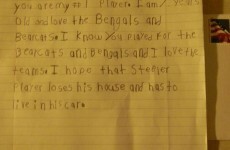 you are my #1 Player. I am 7 years
old and love the Bengals and
Bearcats. I know you played For the
Bearcats and Bengals and I love the
teams. I hope that Steeler
Player loses his house and has to
live in his car.